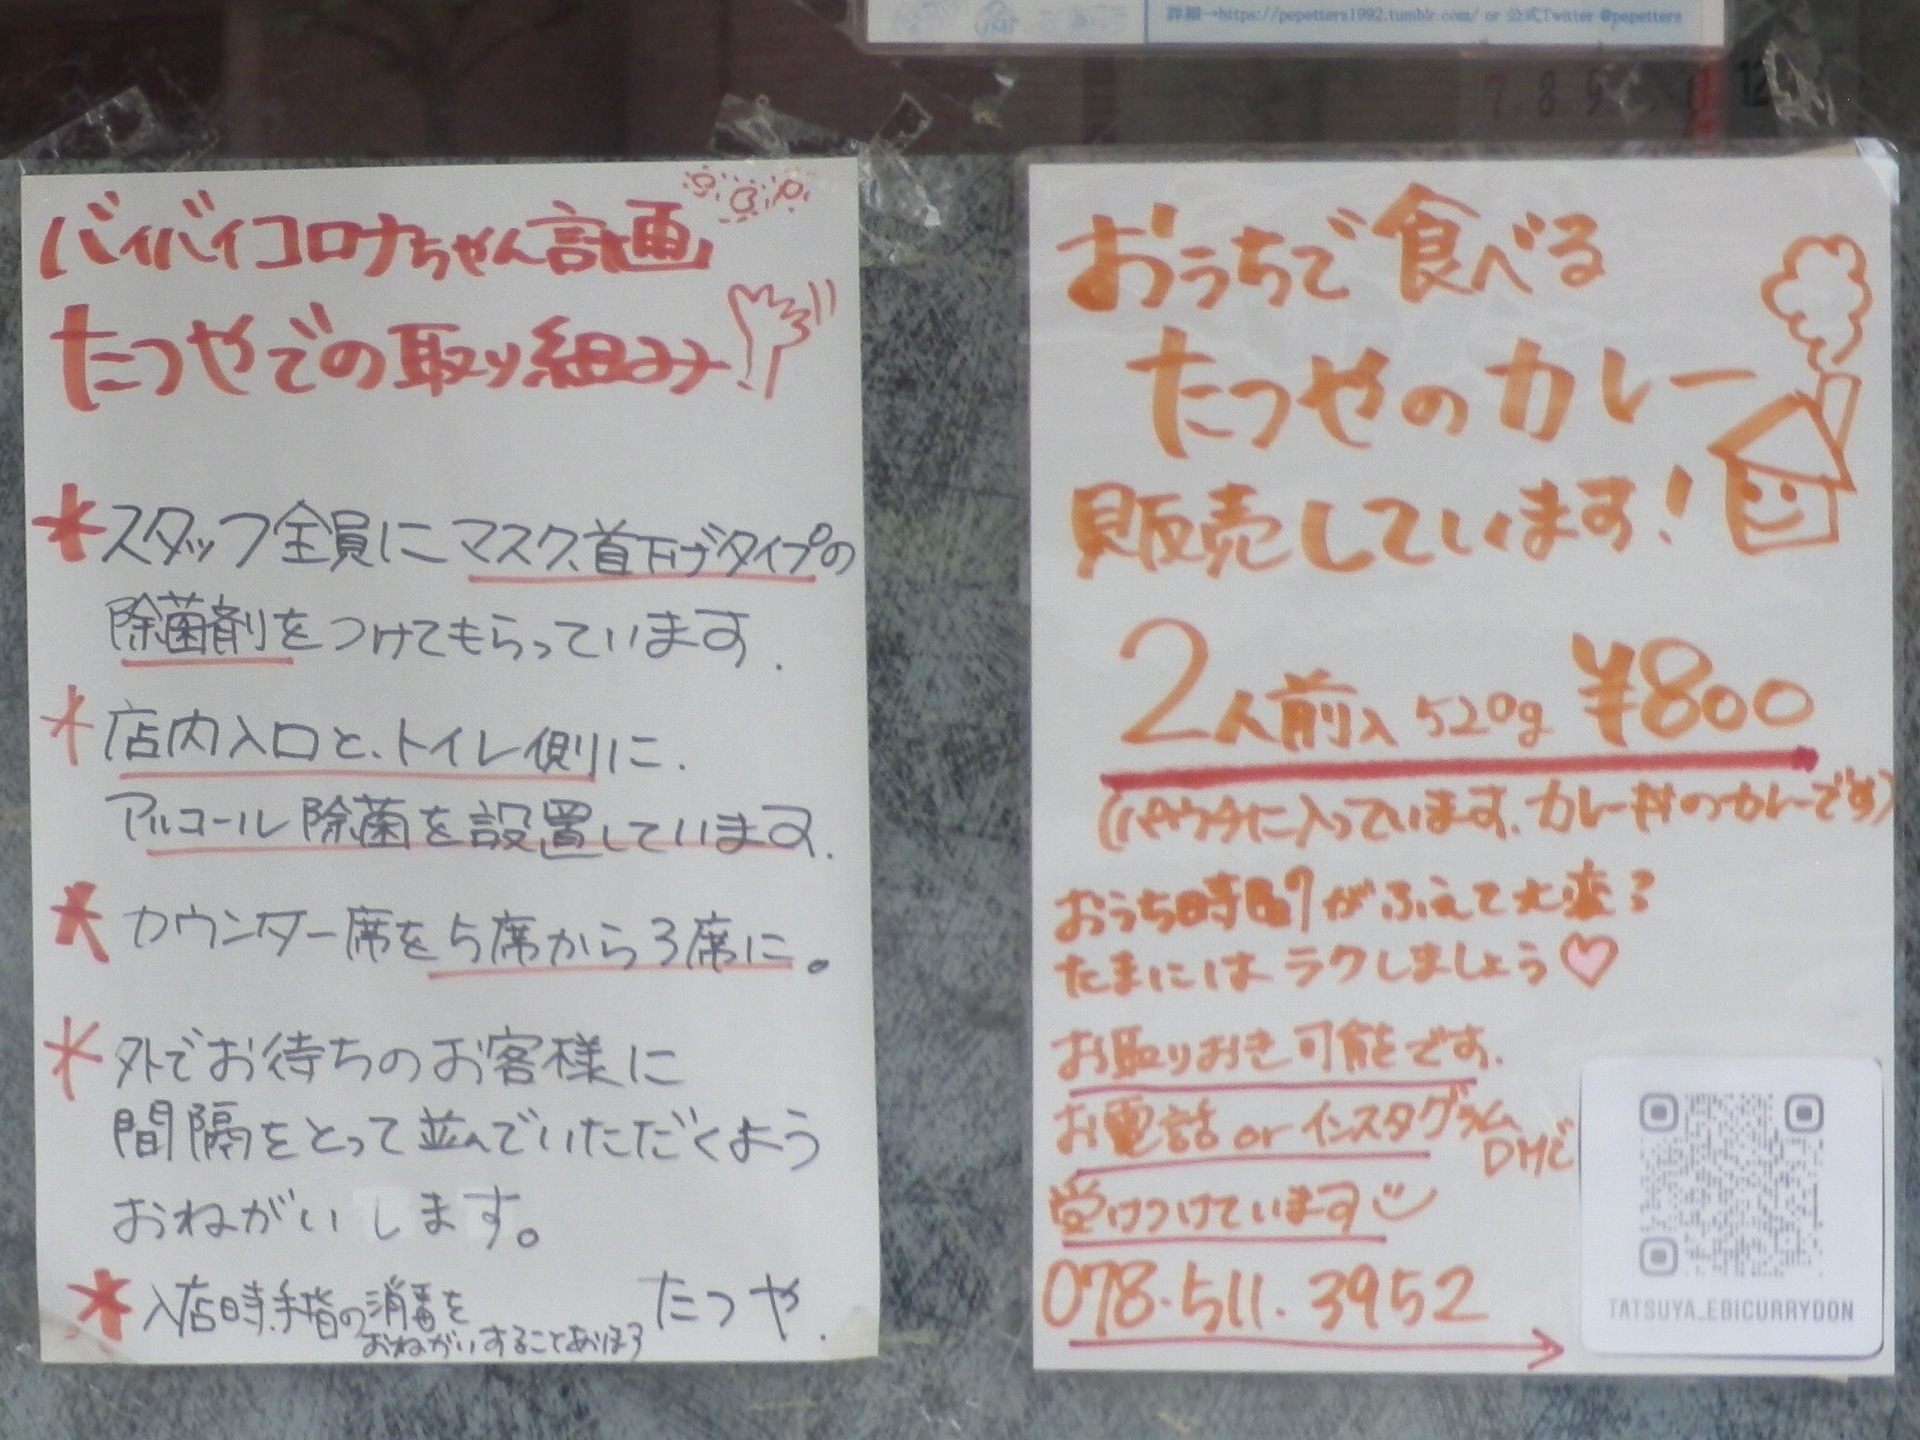 詳細→https://popetters1992.tumblr.com/ or 公式Twitter @popetters
7 8 9
12
バイバイコロナちゃん計画
たつやでの取り組み!
*スタッフ全員にマスク、首下げタイプの
除菌剤をつけてもらっています.
*店内入口と、トイレ側に.
アルコール除菌を設置しています.
*カウンター席を5席から3席に。
*外でお待ちのお客様に
間隔をとって並んでいただくよう
おねがいします。
*入店時、手指の消毒を
おねがいすることあり
たつや.
おうちで食べる
たつやのカレー
販売しています!
2人前入 520g ¥800
(パウチに入っています。カレー丼のカレーです)
おうち時間がふえて大変?
たまにはラクしましょう♡
お取りおき可能です.
お電話 or インスタグラム
DMで
受けつけています
078.511.3952
TATSUYA_EBICURRYDON